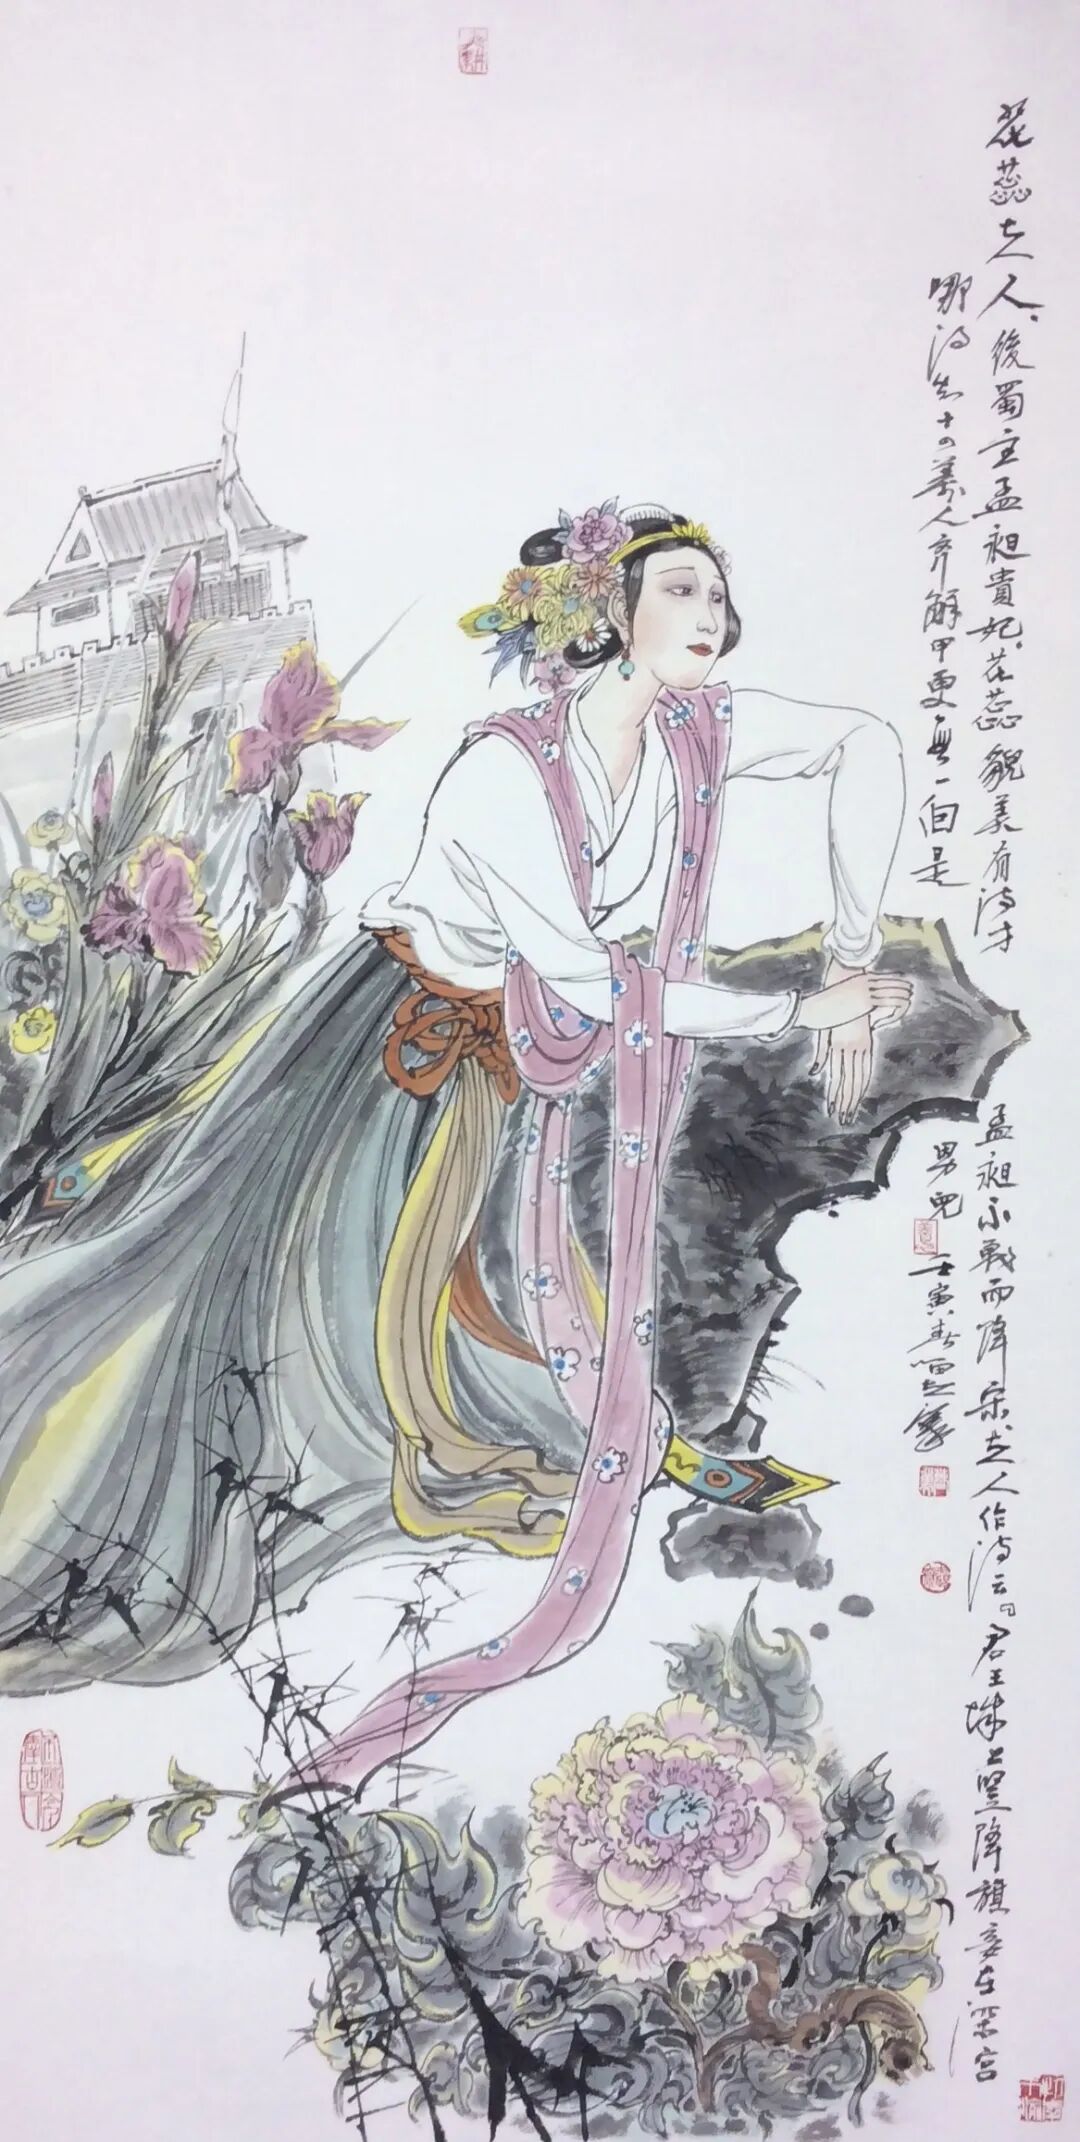 花蕊夫人、後蜀主孟昶貴妃、花蕊貌美有诗才 孟昶不戰而降宋、夫人作诗云：君王城上竖降旗妾在深宫
哪得知十四萬人齊解甲更無一個是 男兒
壬寅春